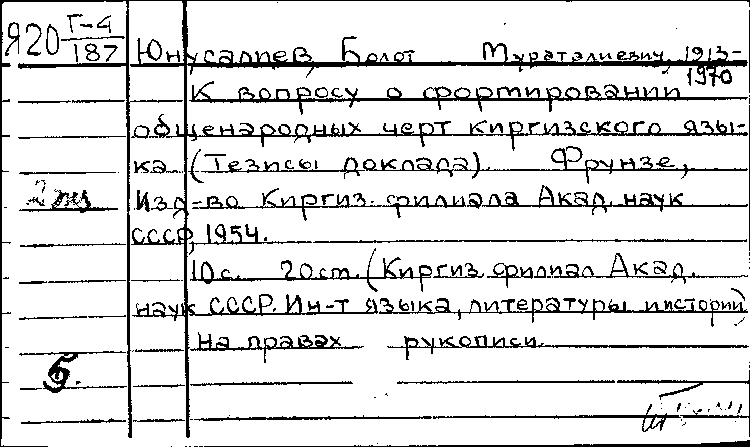 Я20 Г-4/187 Юнусалиев, Болот Мураталиевич, 1913-1970
К вопросу о формировании
общенародных черт киргизского язы-
ка (Тезисы доклада). Фрунзе,
2 экз Изд-во Киргиз. филиала Акад. наук
СССР, 1954.
10 с. 20 см. (Киргиз. филиал Акад.
наук СССР. Ин-т языка, литературы и истории)
На правах рукописи.
Б.